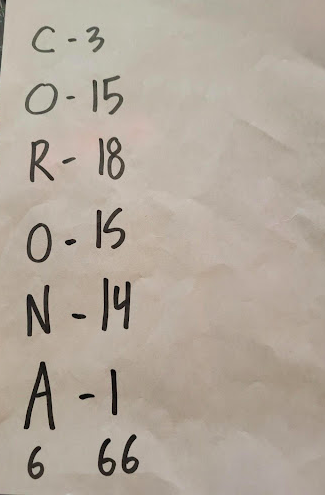 C - 3
O - 15
R - 18
O - 15
N - 14
A - 1
6 66